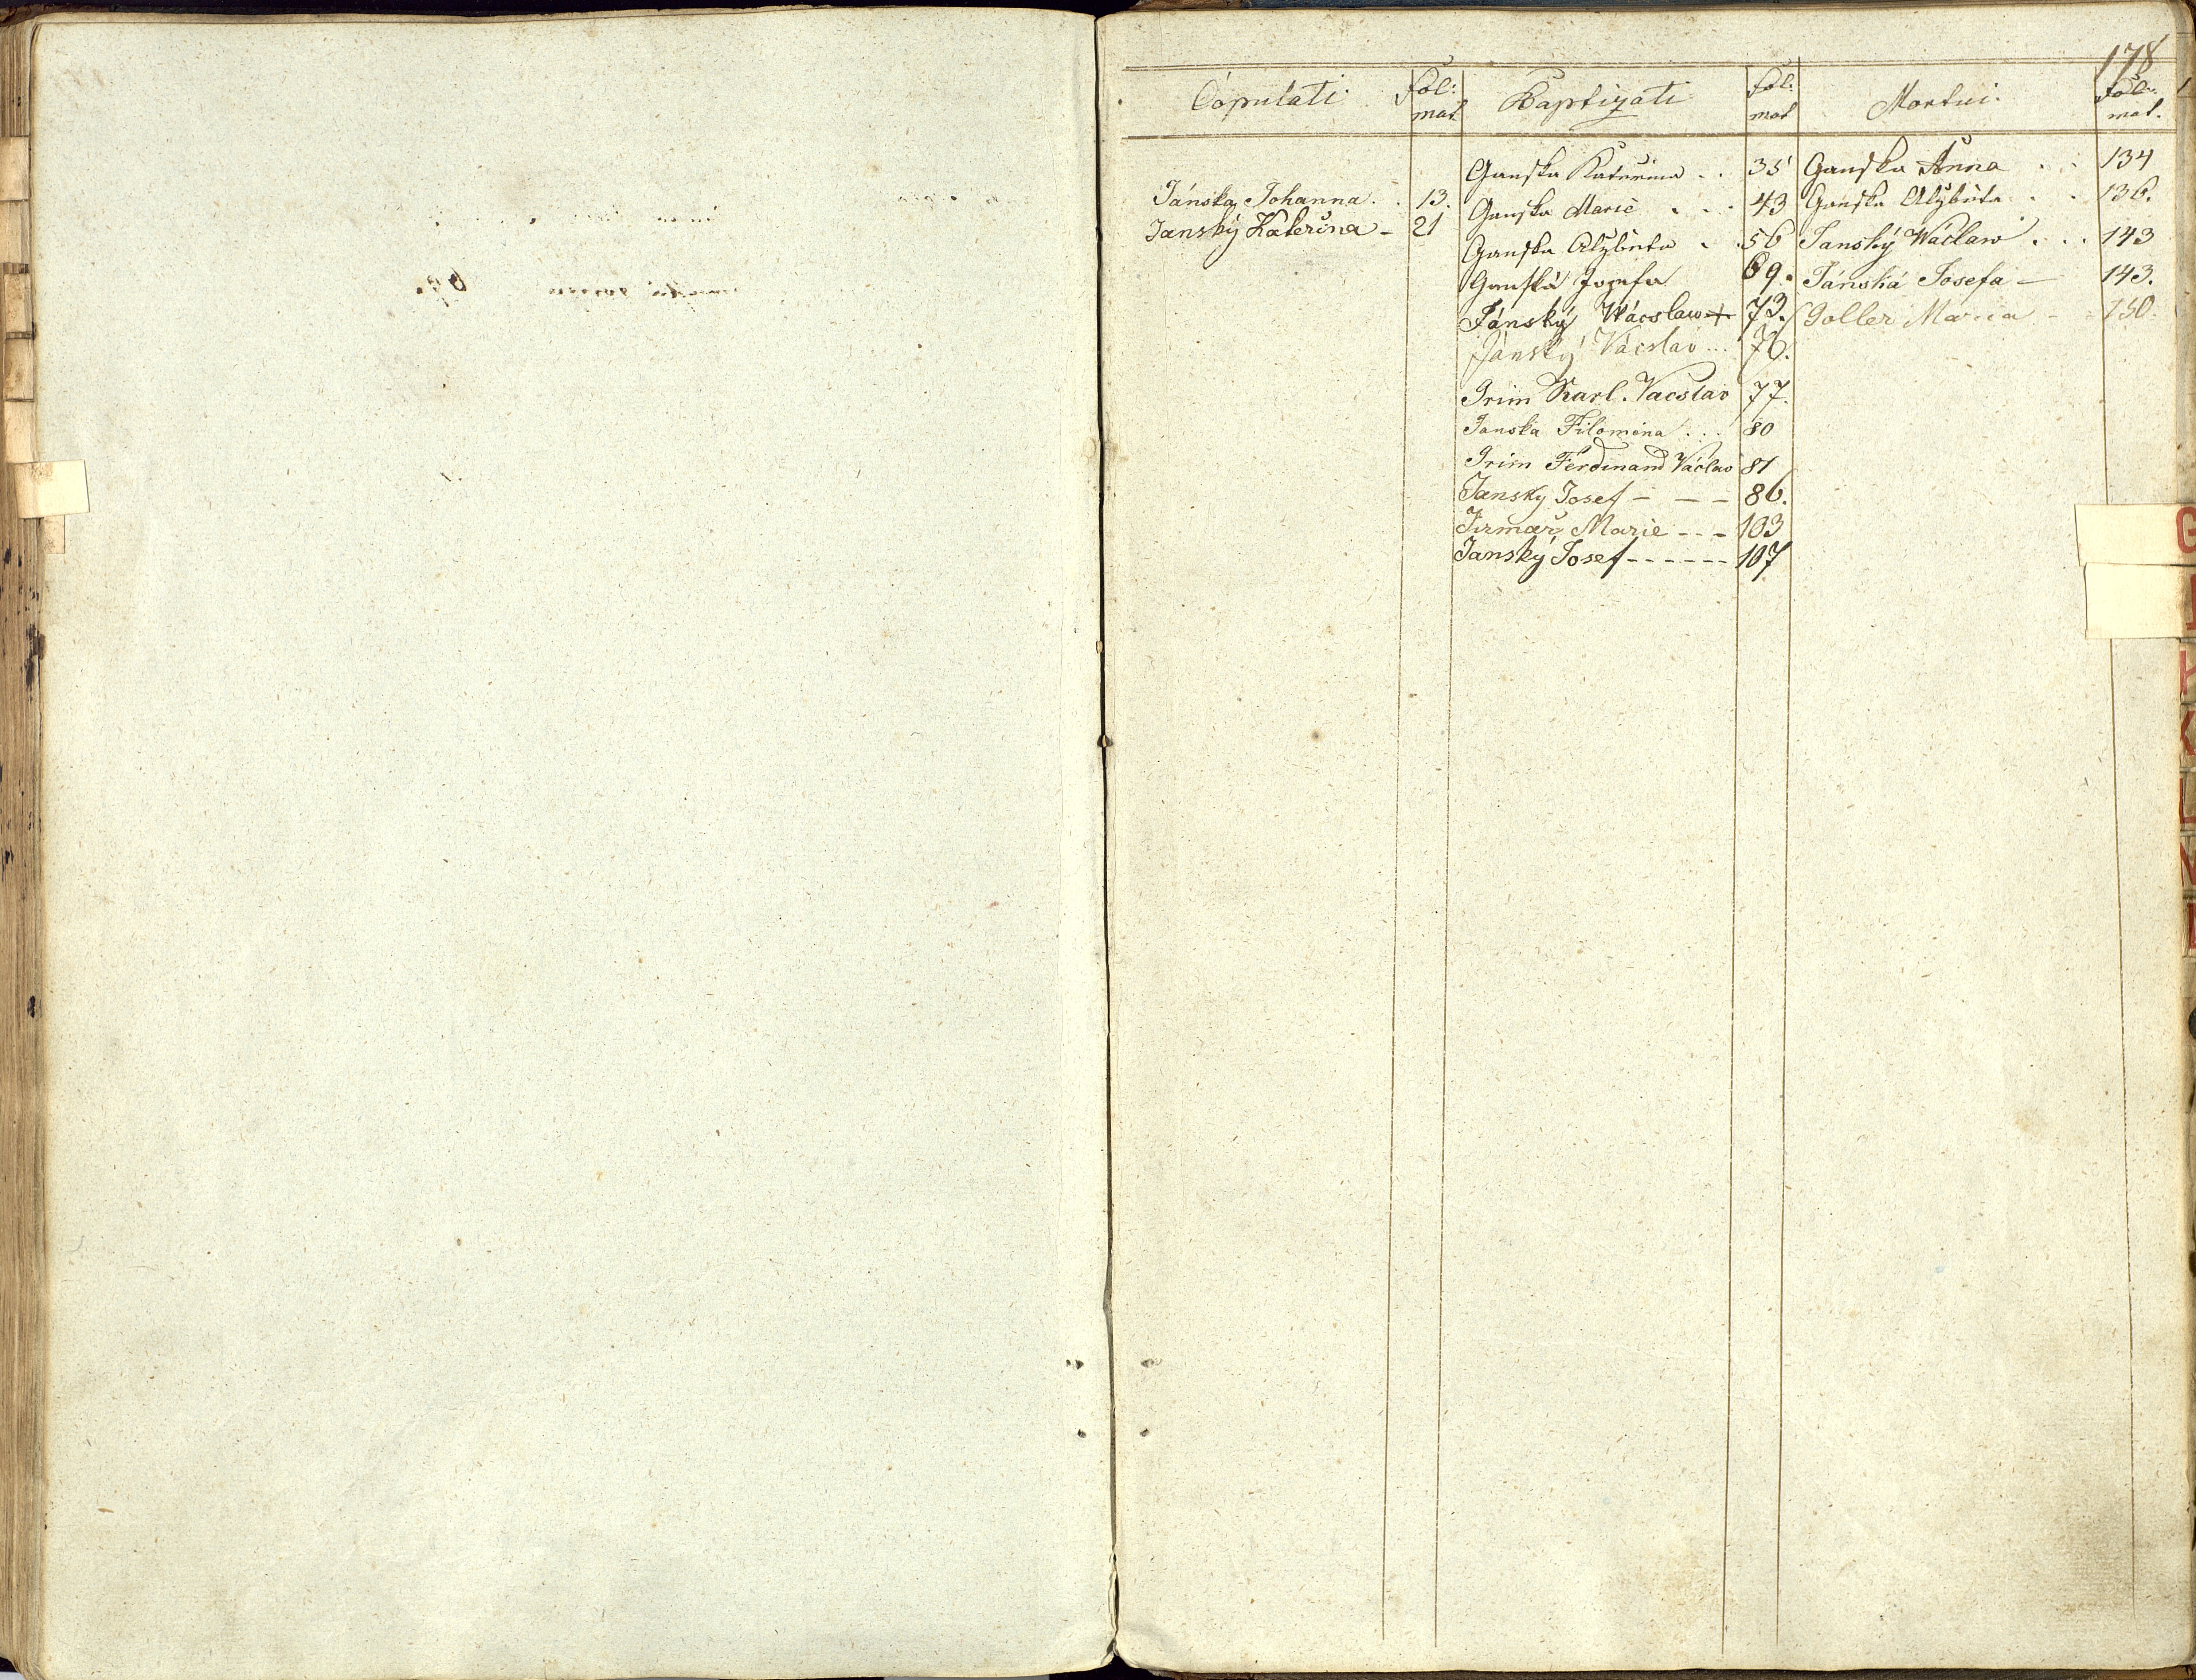 178
Copulati. Fol: mat Baptizati Fol: mat Mortui. Fol: mat.
Ganska Kateřina . . 35 Ganska Anna . . 134
Jánský Johanna . . 13. Ganska Marie . . . 43 Ganska Alžběta . . 136.
Janský Kateřina - 21 Ganska Alžběta . . 56 Janský Wáclaw . . . 143
Ganská Jozefa 69. Jánská Josefa — 143.
Jánský Wácslaw + 73. Goller Maria - 150.
Jánský Vácslav ... 76.
Grim Karl. Vacslav 77.
Janska Filomena . . . 80
Grim Ferdinand Václav 81
Jansky Josef - - - 86.
Jirmař Marie - - - 103
Janský Josef - - - - - - 107
G
K
L